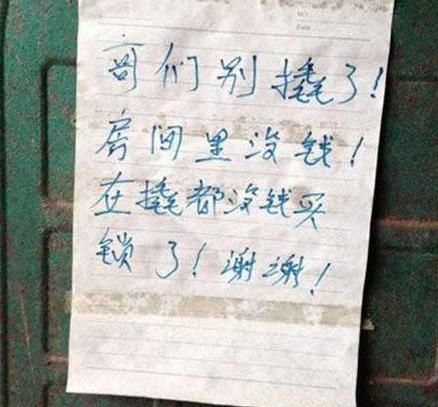 NO.
Date
哥们别撬了!
房间里没钱!
在撬都没钱买
锁了!谢谢!